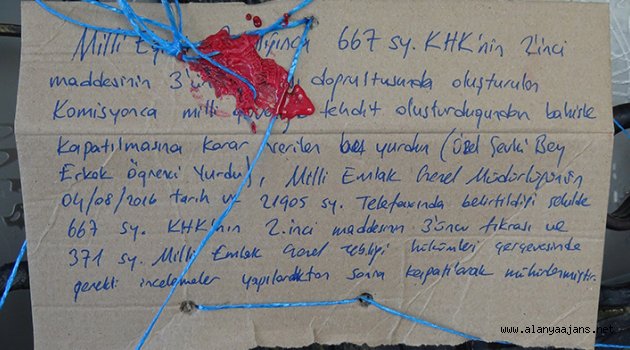 Milli 667 sy. KHK'nin 2'inci
maddesinin doğrultusunda oluşturulan
Komisyonca milli tehdit oluşturduğundan bahisle
kapatılmasına karar verilen yurdun (Özel Şevki Bey
Erkek Öğrenci Yurdu), Milli Emlak Genel Müdürlüğünün
04/08/2016 tarih ve 21905 sy. Telefaxında belirtildiği şekilde
667 sy. KHK'nin 2.inci maddesinin 3'üncü fıkrası ve
371 sy. Milli Emlak Genel Tebliği hükümleri çerçevesinde
gerekli incelemeler yapıldıktan sonra kapatılarak mühürlenmiştir.
www.alanyaajans.net